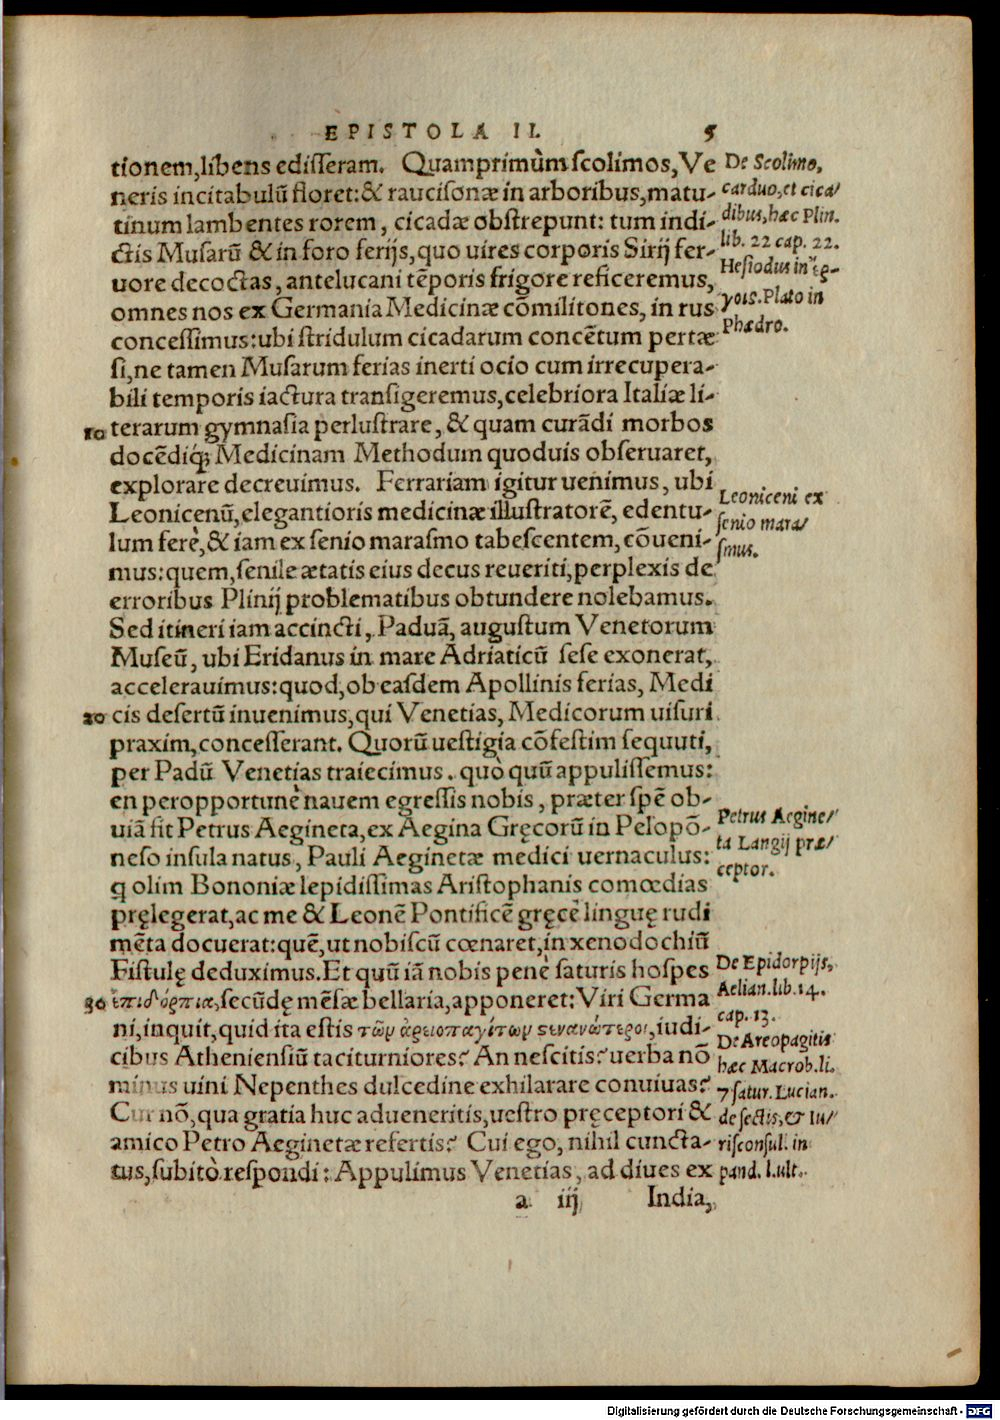 EPISTOLA II. 5
tionem, libens edisseram. Quamprimùm scolimos, Ve
neris incitabulũ floret: & raucisonæ in arboribus, matu-
tinum lambentes rorem, cicadæ obstrepunt: tum indi-
ctis Musarũ & in foro ferijs, quo uires corporis Sirij fer-
uore decoctas, antelucani tẽporis frigore reficeremus,
omnes nos ex Germania Medicinæ cõmilitones, in rus
concessimus: ubi stridulum cicadarum concẽtum pertæ
si, ne tamen Musarum ferias inerti ocio cum irrecupera-
bili temporis iactura transigeremus, celebriora Italiæ li-
10 terarum gymnasia perlustrare, & quam curãdi morbos
docẽdiq; Medicinam Methodum quoduis obseruaret,
explorare decreuimus. Ferrariam igitur uenimus, ubi
Leonicenũ, elegantioris medicinæ illustratorẽ, edentu-
lum ferè, & iam ex senio marasmo tabescentem, cõueni-
mus: quem, senile ætatis eius decus reueriti, perplexis de
erroribus Plinij problematibus obtundere nolebamus.
Sed itineri iam accincti, Paduã, augustum Venetorum
Museũ, ubi Eridanus in mare Adriaticũ sese exonerat,
accelerauimus: quod, ob easdem Apollinis ferias, Medi
20 cis desertũ inuenimus, qui Venetias, Medicorum uisuri
praxim, concesserant. Quorũ uestigia cõfestim sequuti,
per Padũ Venetias traiecimus. quò quũ appulissemus:
en peropportunè nauem egressis nobis, præter spẽ ob-
uiã fit Petrus Aegineta, ex Aegina Gręcorũ in Pelopõ-
neso insula natus, Pauli Aeginetæ medici uernaculus:
q̃ olim Bononiæ lepidissimas Aristophanis comœdias
pręlegerat, ac me & Leonẽ Pontificẽ gręcè linguę rudi
mẽta docuerat: quẽ, ut nobiscũ cœnaret, in xenodochiũ
Fistulę deduximus. Et quũ iã nobis penè saturis hospes
30 ἐπιδόρπια, secũdę mẽsæ bellaria, apponeret: Viri Germa
ni, inquit, quid ita estis τῶν ἀρειοπαγίτων στεγανώτεροι, iudi-
cibus Atheniensiũ taciturniores? An nescitis? uerba nõ
minus uini Nepenthes dulcedine exhilarare conuiuas?
Cur nõ, qua gratia huc adueneritis, uestro pręceptori &
amico Petro Aeginetæ refertis? Cui ego, nihil cuncta-
tus, subitò respondi: Appulimus Venetias, ad diues ex
a iij India,
De Scolimo,
carduo, et cica/
dibus, hæc Plin.
lib. 22 cap. 22.
Hesiodus in ἔρ-
γοις. Plato in
Phædro.
Leoniceni ex
senio mara/
smus.
Petrus Aegine/
ta Langij præ/
ceptor.
De Epidorpijs,
Aelian. lib. 14.
cap. 13.
De Areopagitis
hæc Macrob. li.
7 satur. Lucian.
de sectis, & Iu/
risconsul. in
pand. l. ult.
Digitalisierung gefördert durch die Deutsche Forschungsgemeinschaft - DFG